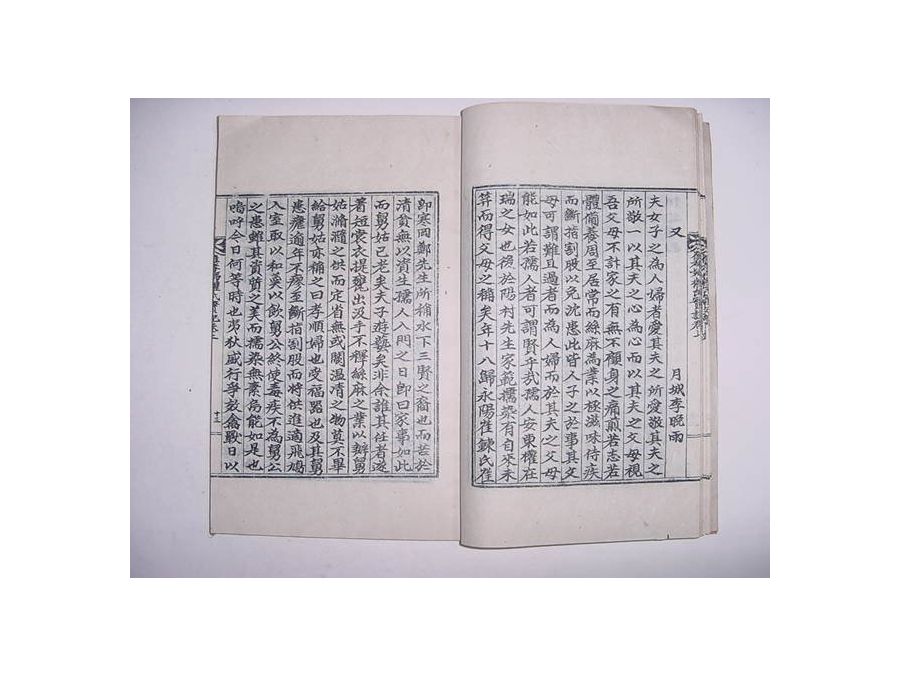 又
月城李晩雨
夫女子之為人婦者愛其夫之所愛敬其夫之
所敬一以其夫之心為心而以其夫之父母視
吾父母不計家之有無不顧身之痛煎若志若
體葡蓦周至居常而絲麻為業以極滋味侍疾
而斷指割股以免沈患此皆人子之於事其文
母可謂難且過者而為人婦而於其夫之父母
能如此若孺人者可謂賢乎哉孺人安東權在
瑞之女也後於陽村先生家範擩染有自來未
筓而得父母之稱矣年十八歸永陽崔鍊氏崔
即寒田鄭先生所稱水下三賢之裔也而苦於
清貧無以資生孺人入門之日即曰家事如此
而舅姑已老矣夫子遊藝矣非余誰其任者遂
着短裳衣提甕出汲手不釋絲麻之業以辦舅
姑滫瀡之供而定省無或闕温清之物莫不畢
給舅姑亦稱之曰孝順婦也受福器也及其舅
患癰逾年不瘳至斷指割股而將供進適飛鴆
入室取以和羹以飲舅公終使毒疾不為舅公
之患雖其資質之美而擩染無素烏能如是也
嗚呼今日何等時也夷狄盛行爭教禽獸日以